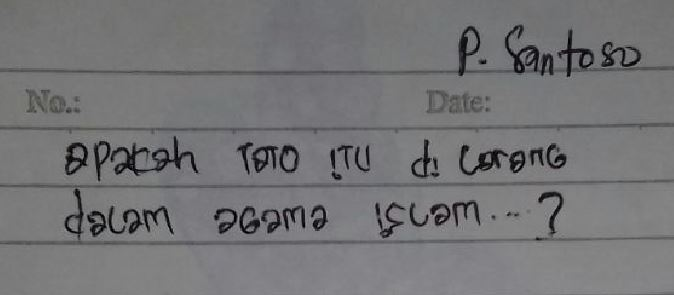 P. Santoso
No.: Date:
apakah TOTO ITU di Larang
dalam agama ISLam...?